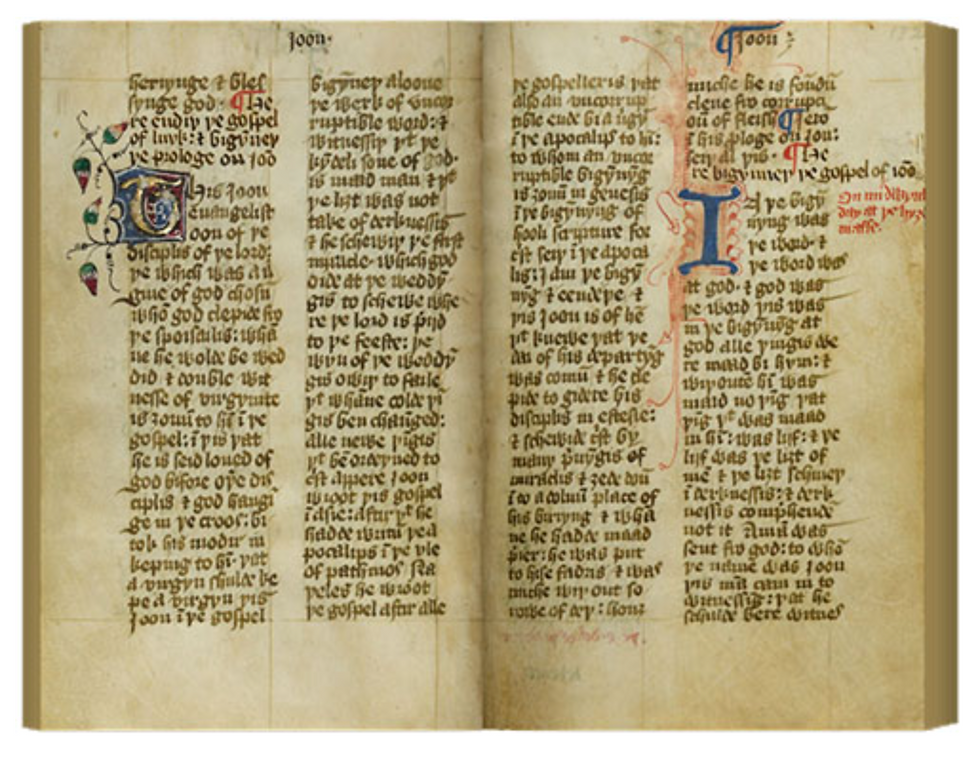 Joon·
heriynge & bles
synge god · ¶ He
re endiþ þe gospel
of luyk: & bigȳneþ
þe prologe on ioō
His Joon
euangelist
oon of þe
disciplis of þe lord:
þe which was a ů
gine of god chosū
whō god clepide fro
þe spousailis: whā
ne he wolde be wed
did & double wit
nesse of virgynite
is ȝouū to hī ī þe
gospel: ī þis þat
he is seid loued of
god bifore oþe dis
ciplis & god hangī
ge in þe croos: bi
tok his modir in
keping to hī· þat
a virgyn schulde ke
pe a virgyn þis
Joon ī þe gospel
bigȳneþ aloone
þe werk of vncor
ruptible word: &
witnessiþ þt þe
kȳdeli sone of god·
is maad man & þt
þe liȝt was not
take of derknessis
& he schewiþ þe first
miracle· which god
dide at þe weddȳ
gis to schewe whe
re þe lord is p̄ied
to þe feeste: þe
wyn of þe weddȳ
gis owiþ to faile
þt whane olde þī
gis ben chaunged:
alle newe þīgis
þt bē ordeyned to
cͥst appere Joon
wroot þis gospel
ī asie: aftir þt he
hadde writū þe a
pocalips ī þe yle
of pathmos Na
þeles he wroot
þe gospel aftir alle
þe gospelleris þat
also an vncorrup
tible ende bi a v̄gȳ
ī þe apocalips to hī:
to whom an vncor
ruptible bigȳnȳg
is ȝouū in genesis
ī þe bigȳnȳng of
hooli scripture for
cͥst seiþ ī þe apoca
lips: I am þe bigȳ
nȳg & eendȳge &
þis Joon is of hē
þt knewe þat þe
dai of his departȳg
was comū & he cle
pide to gidere his
disciplis in effesie:
& schewide cͥst by
many p̄uȳgis of
miraclis & ȝede doū
ī to a doluū place of
his biriyng & whā
ne he hadde maad
p̄ier: he was put
to hise fadris & was
miche wiþ out so
rowe of deþ: hou
¶ Joon
miche he is foūdū
clene fro corrupci
oū of fleisch ¶ Jero
ī his prologe on Joū:
seiþ al þis · ¶ He
re bigynneþ þe gospel of ioō
I N þe bigȳ
nyng was
þe word· &
þe word was
at god· & god was
þe word þis was
in þe bigȳnȳg at
god alle þingis we
re maad bi hym: &
wiþoute hī was
maad no þīg þat
þīg þt was maad
in hī: was lijf: & þe
lijf was þe liȝt of
mē & þe liȝt schineþ
ī derknessis: & derk
nessis comp̄hende
not it A mā was
sent fro god: to whō
þe name was Joon
þis mā cam in to
witnessīg: þat he
schulde bere witnes